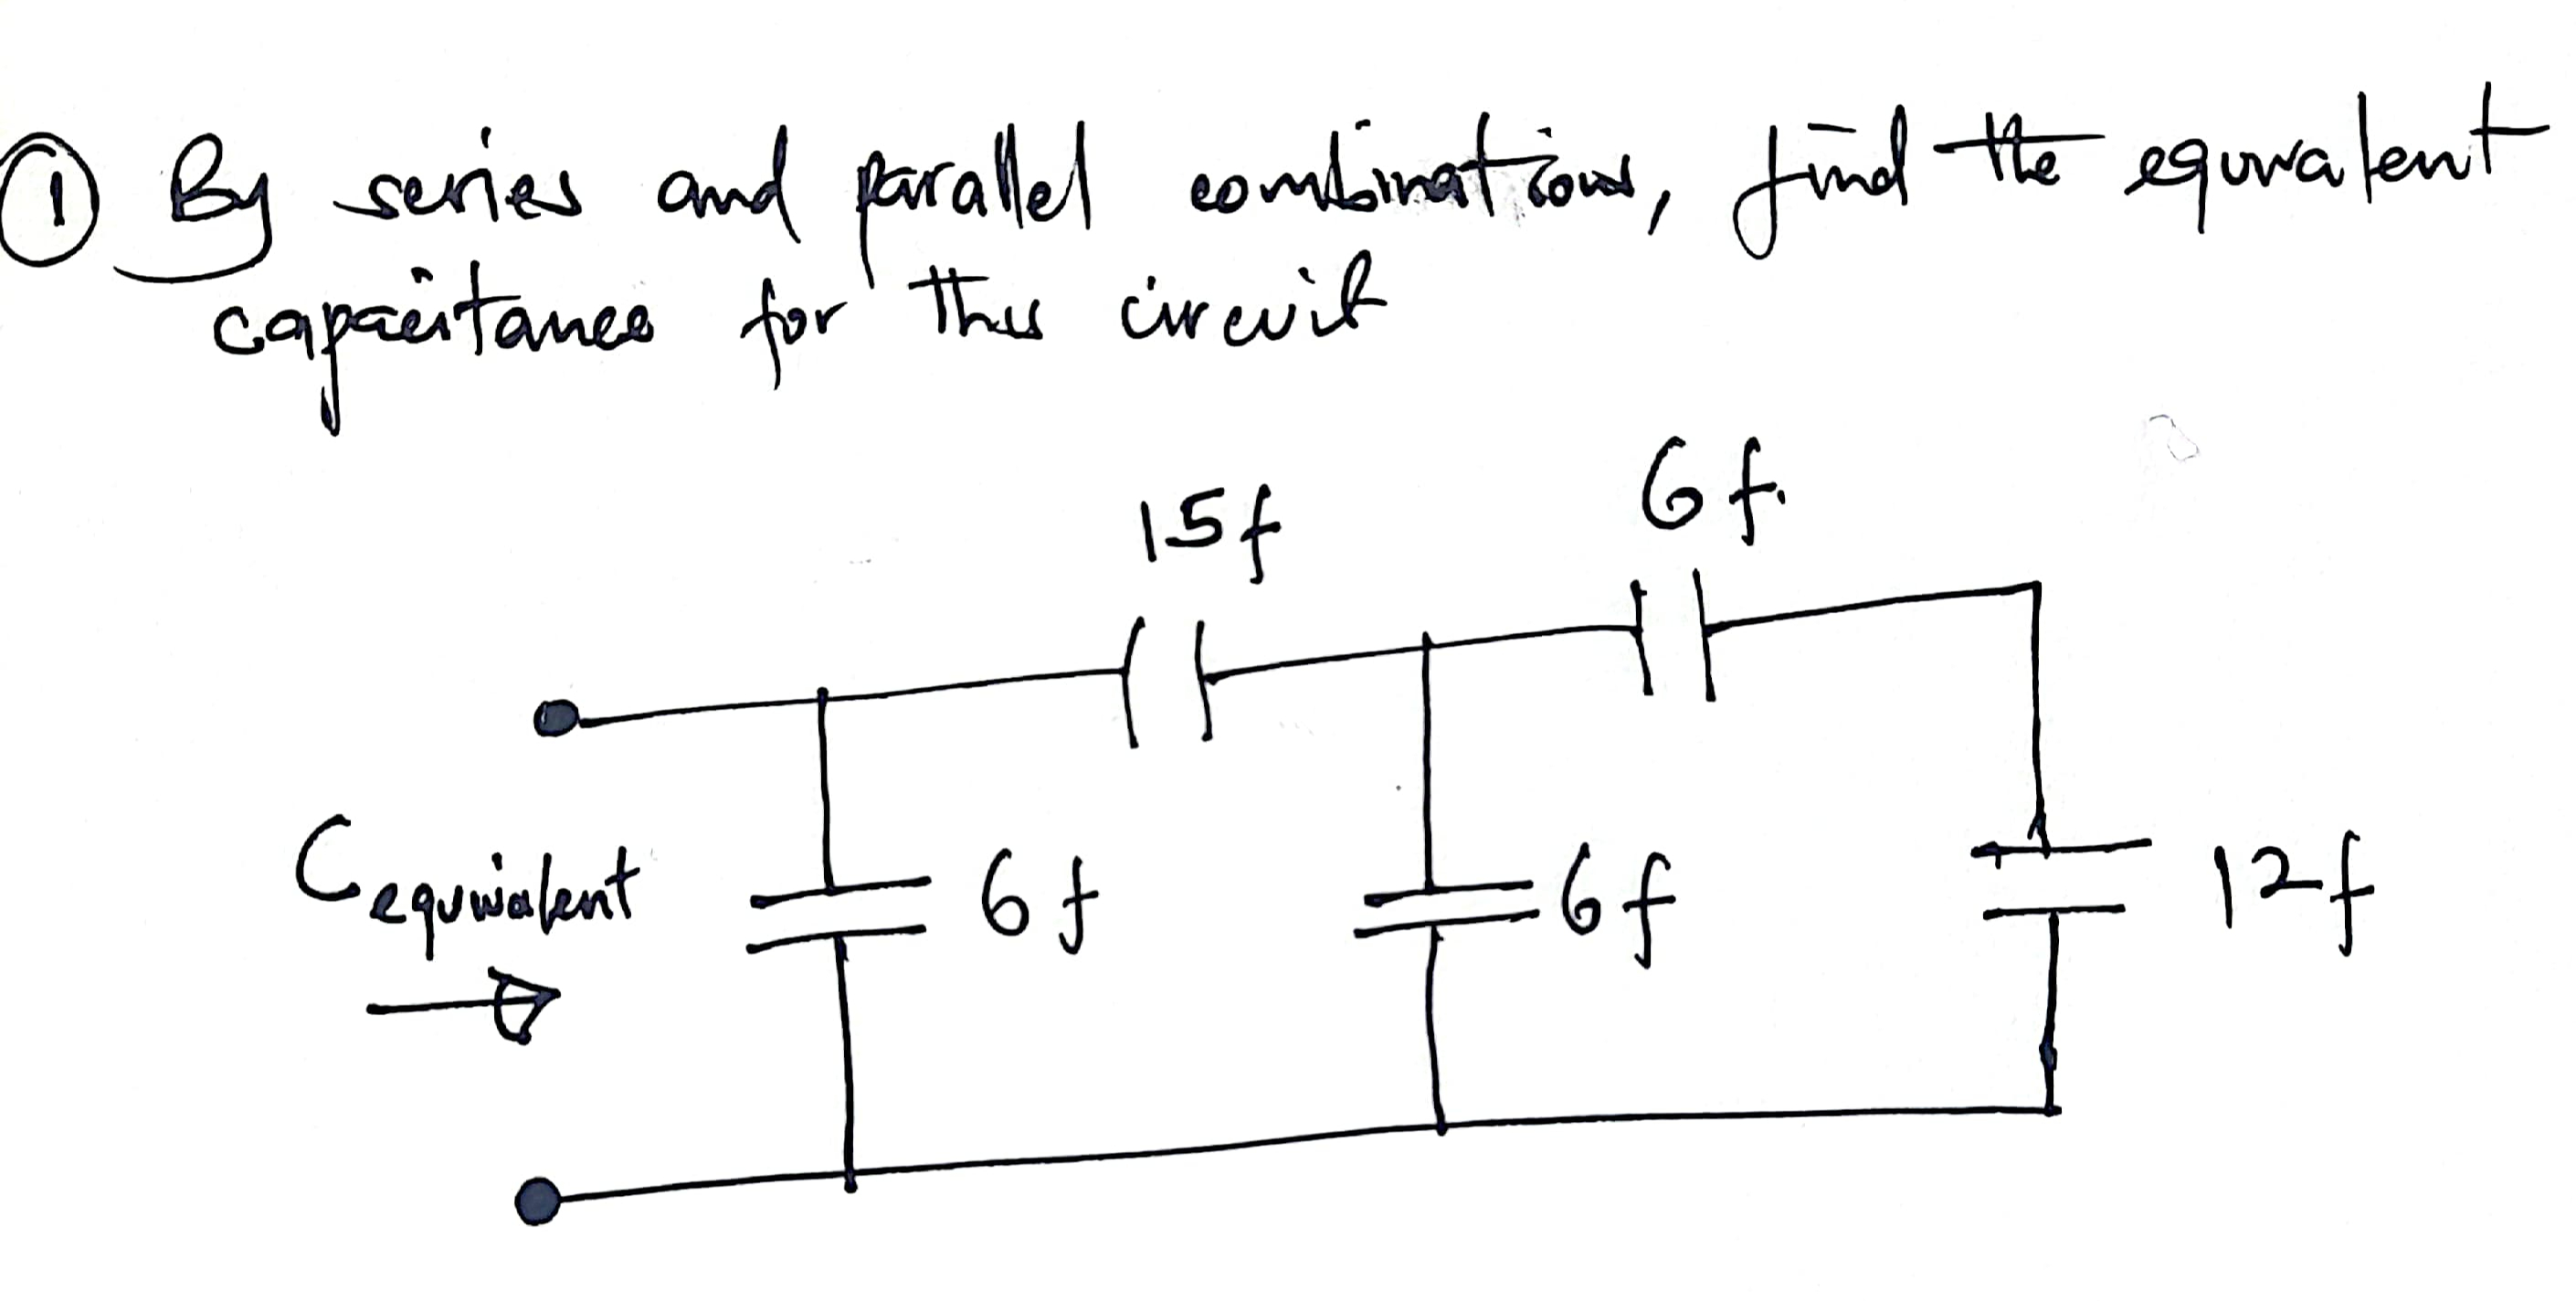 ① By series and parallel combinations, find the equivalent
capacitance for this circuit
15f
6f.
Cequivalent
6f
6f
12f